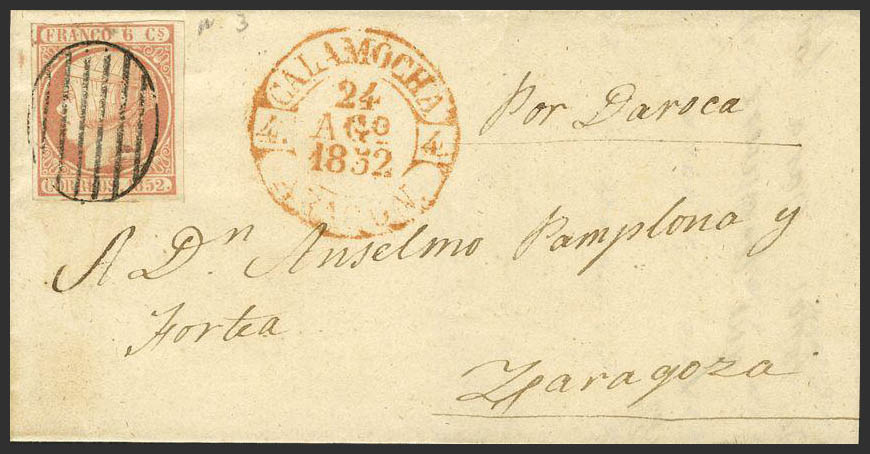 FRANCO 6 Cs
CORREOS 1852.
CALAMOCHA
24
AGo
1852
4 4
ARAGON
Por Daroca
A Dn Anselmo Pamplona y
Fortea
Zaragoza